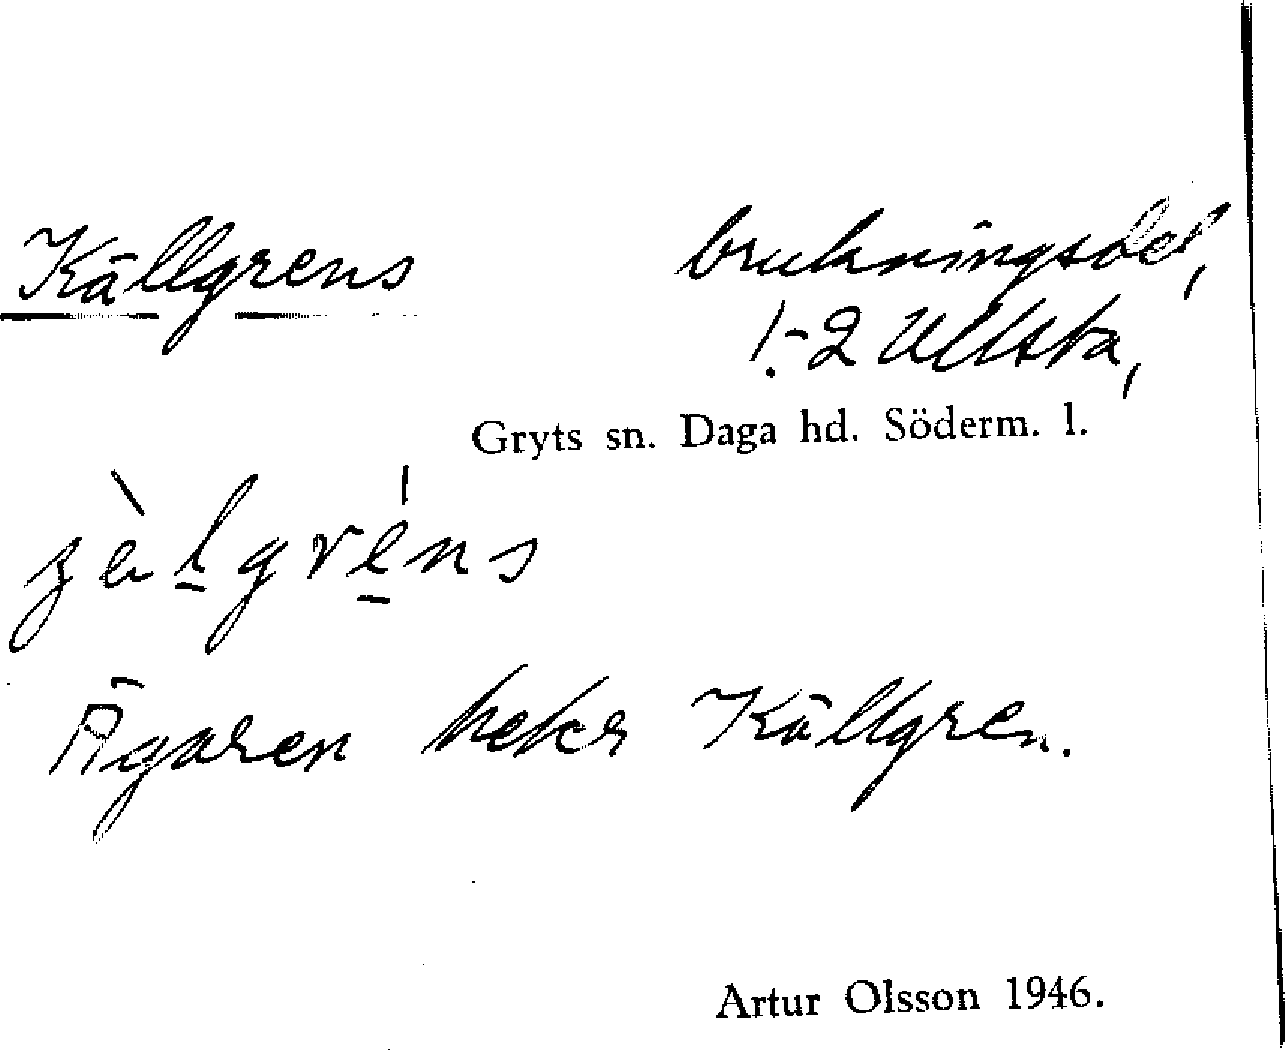 Källgrens brukningsdel,
1:2 Ullsta,
Gryts sn. Daga hd. Söderm. l.
Ägaren heter Källgren.
Artur Olsson 1946.